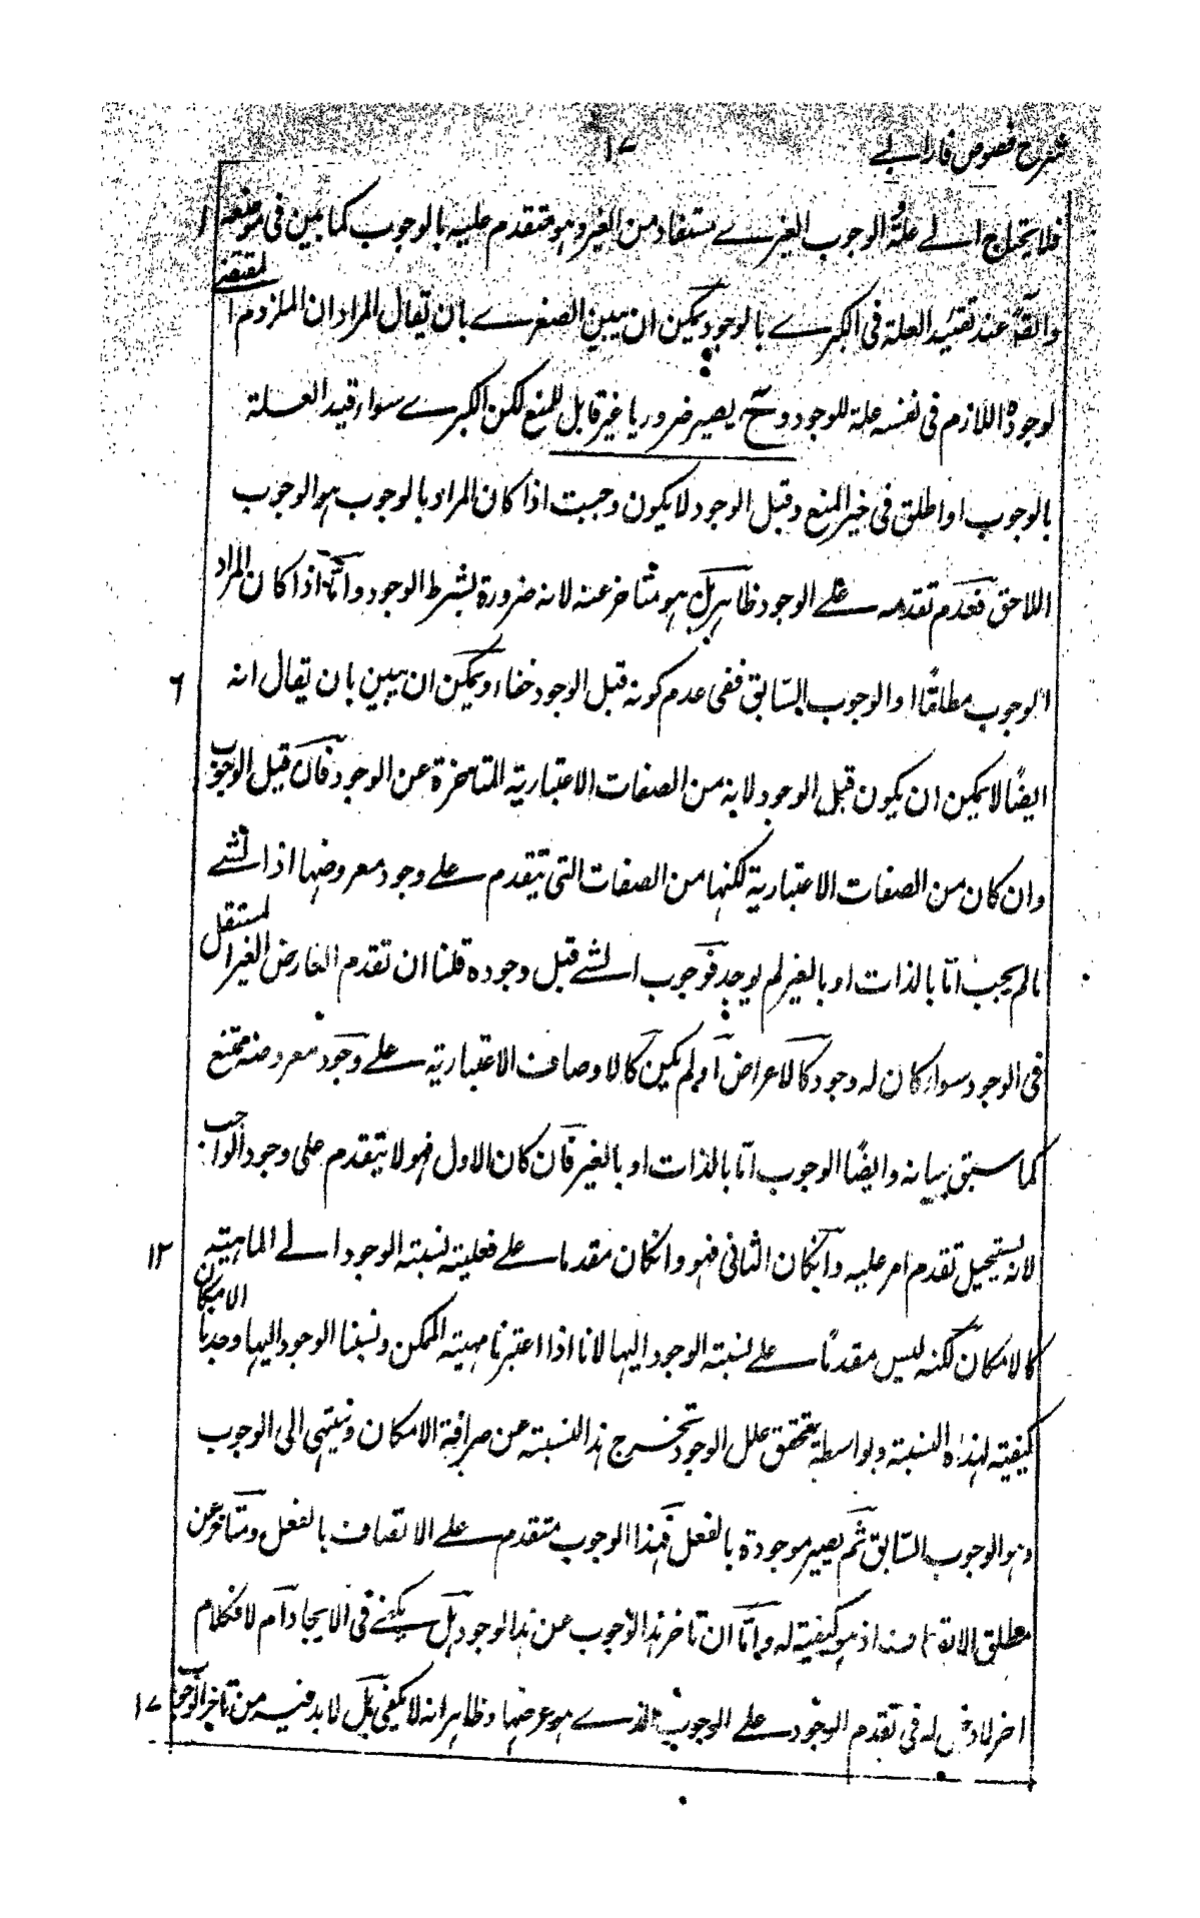 شرح فصوص فارابي ١٧
فلا يحتاج الے علة والوجوب الغيرے مستفاد من الغير وهو متقدم عليه بالوجوب كما بين فى موضعه ١
وايضًا عند تقييد العلة فى الكبرے بالوجود يمكن ان يبين الصغرے بان يقال المراد ان الملزوم المقتضے
لوجوده اللازم فى نفسه علة للوجود وح يصير ضروريا غير قابل للمنع لكن الكبرے سواء قيد العلة
بالوجوب او اطلق فى خير المنع وقبل الوجود لا يكون وجبت اذا كان المراد بالوجوب هو الوجوب
اللاحق فعدم تقدمه علے الوجود ظاهر بل هو متأخر عنه لانه ضرورة بشرط الوجود واما اذا كان المراد
الوجوب مطلقًا او الوجوب السابق ففى عدم كونه قبل الوجود خفاء ويمكن ان يبين بان يقال انه ٦
ايضًا لا يمكن ان يكون قبل الوجود لانه من الصفات الاعتبارية المتاخرة عن الوجود فان قيل الوجوب
وان كان من الصفات الاعتبارية لكنها من الصفات التى تتقدم علے وجود معروضها اذ الشے
مالم يجب اما بالذات او بالغير لم يوجد فوجوب الشے قبل وجوده قلنا ان تقدم العارض الغير المستقل
فى الوجود سواء كان له وجود كالاعراض او لم يكن كالاوصاف الاعتبارية علے وجود معروضه ممتنع
كما سبق بيانه وايضًا الوجوب اما بالذات او بالغير فان كان الاول فهو لا يتقدم على وجود الواجب
لانه يستحيل تقدم امر عليه وانكان الثانى فهو وانكان مقدما علے فعلية نسبة الوجود الے الماهية ١٢
كالامكان لكنه ليس مقدمًا علے نسبة الوجود اليها لانا اذا اعتبرنا مهية الممكن ونسبنا الوجود اليها وجدنا الامكان
كيفية لهذه النسبة وبواسطة تحقق علل الوجود تخرج هذا النسبة عن صرافة الامكان وينتهى الى الوجوب
وهو الوجوب السابق ثم يصير موجودة بالفعل فهذا الوجوب متقدم علے الاتصاف بالفعل ومتأخر عن
مطلق الاتصاف اذ هو كيفية له واما ان تاخر هذا الوجوب عن هذا الوجود بل يكفے فى الايجاد ام لا فكلام
اخر لا دخل له فى تقدم الوجود علے الوجوب الذے هو عرضها وظاهر انه لا يكفى بل لا بد فيه من تاخر الوجوب ١٧